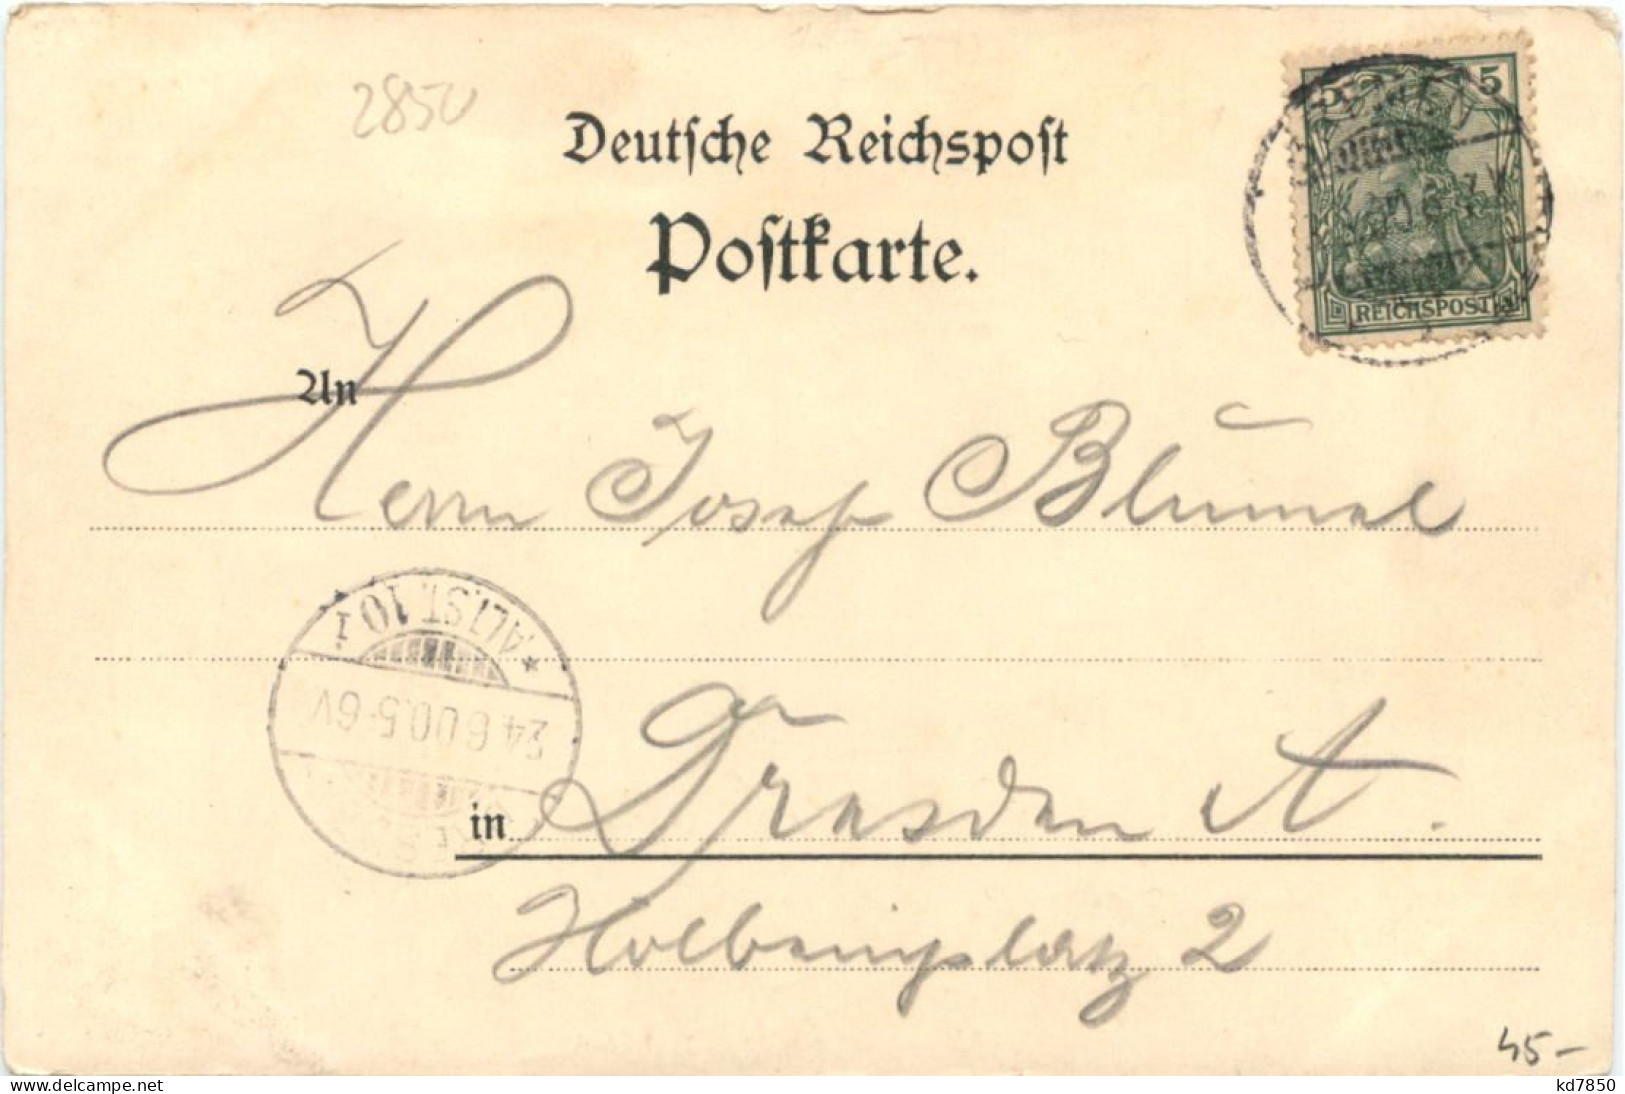 2850
Deutsche Reichspost
Postkarte.
5 5
REICHSPOST
An
Herrn Josef Blümel
ALTST. 10 I
24.6.00.5-6V
in Dresden A.
Holbeinplatz 2
45-
kd7850